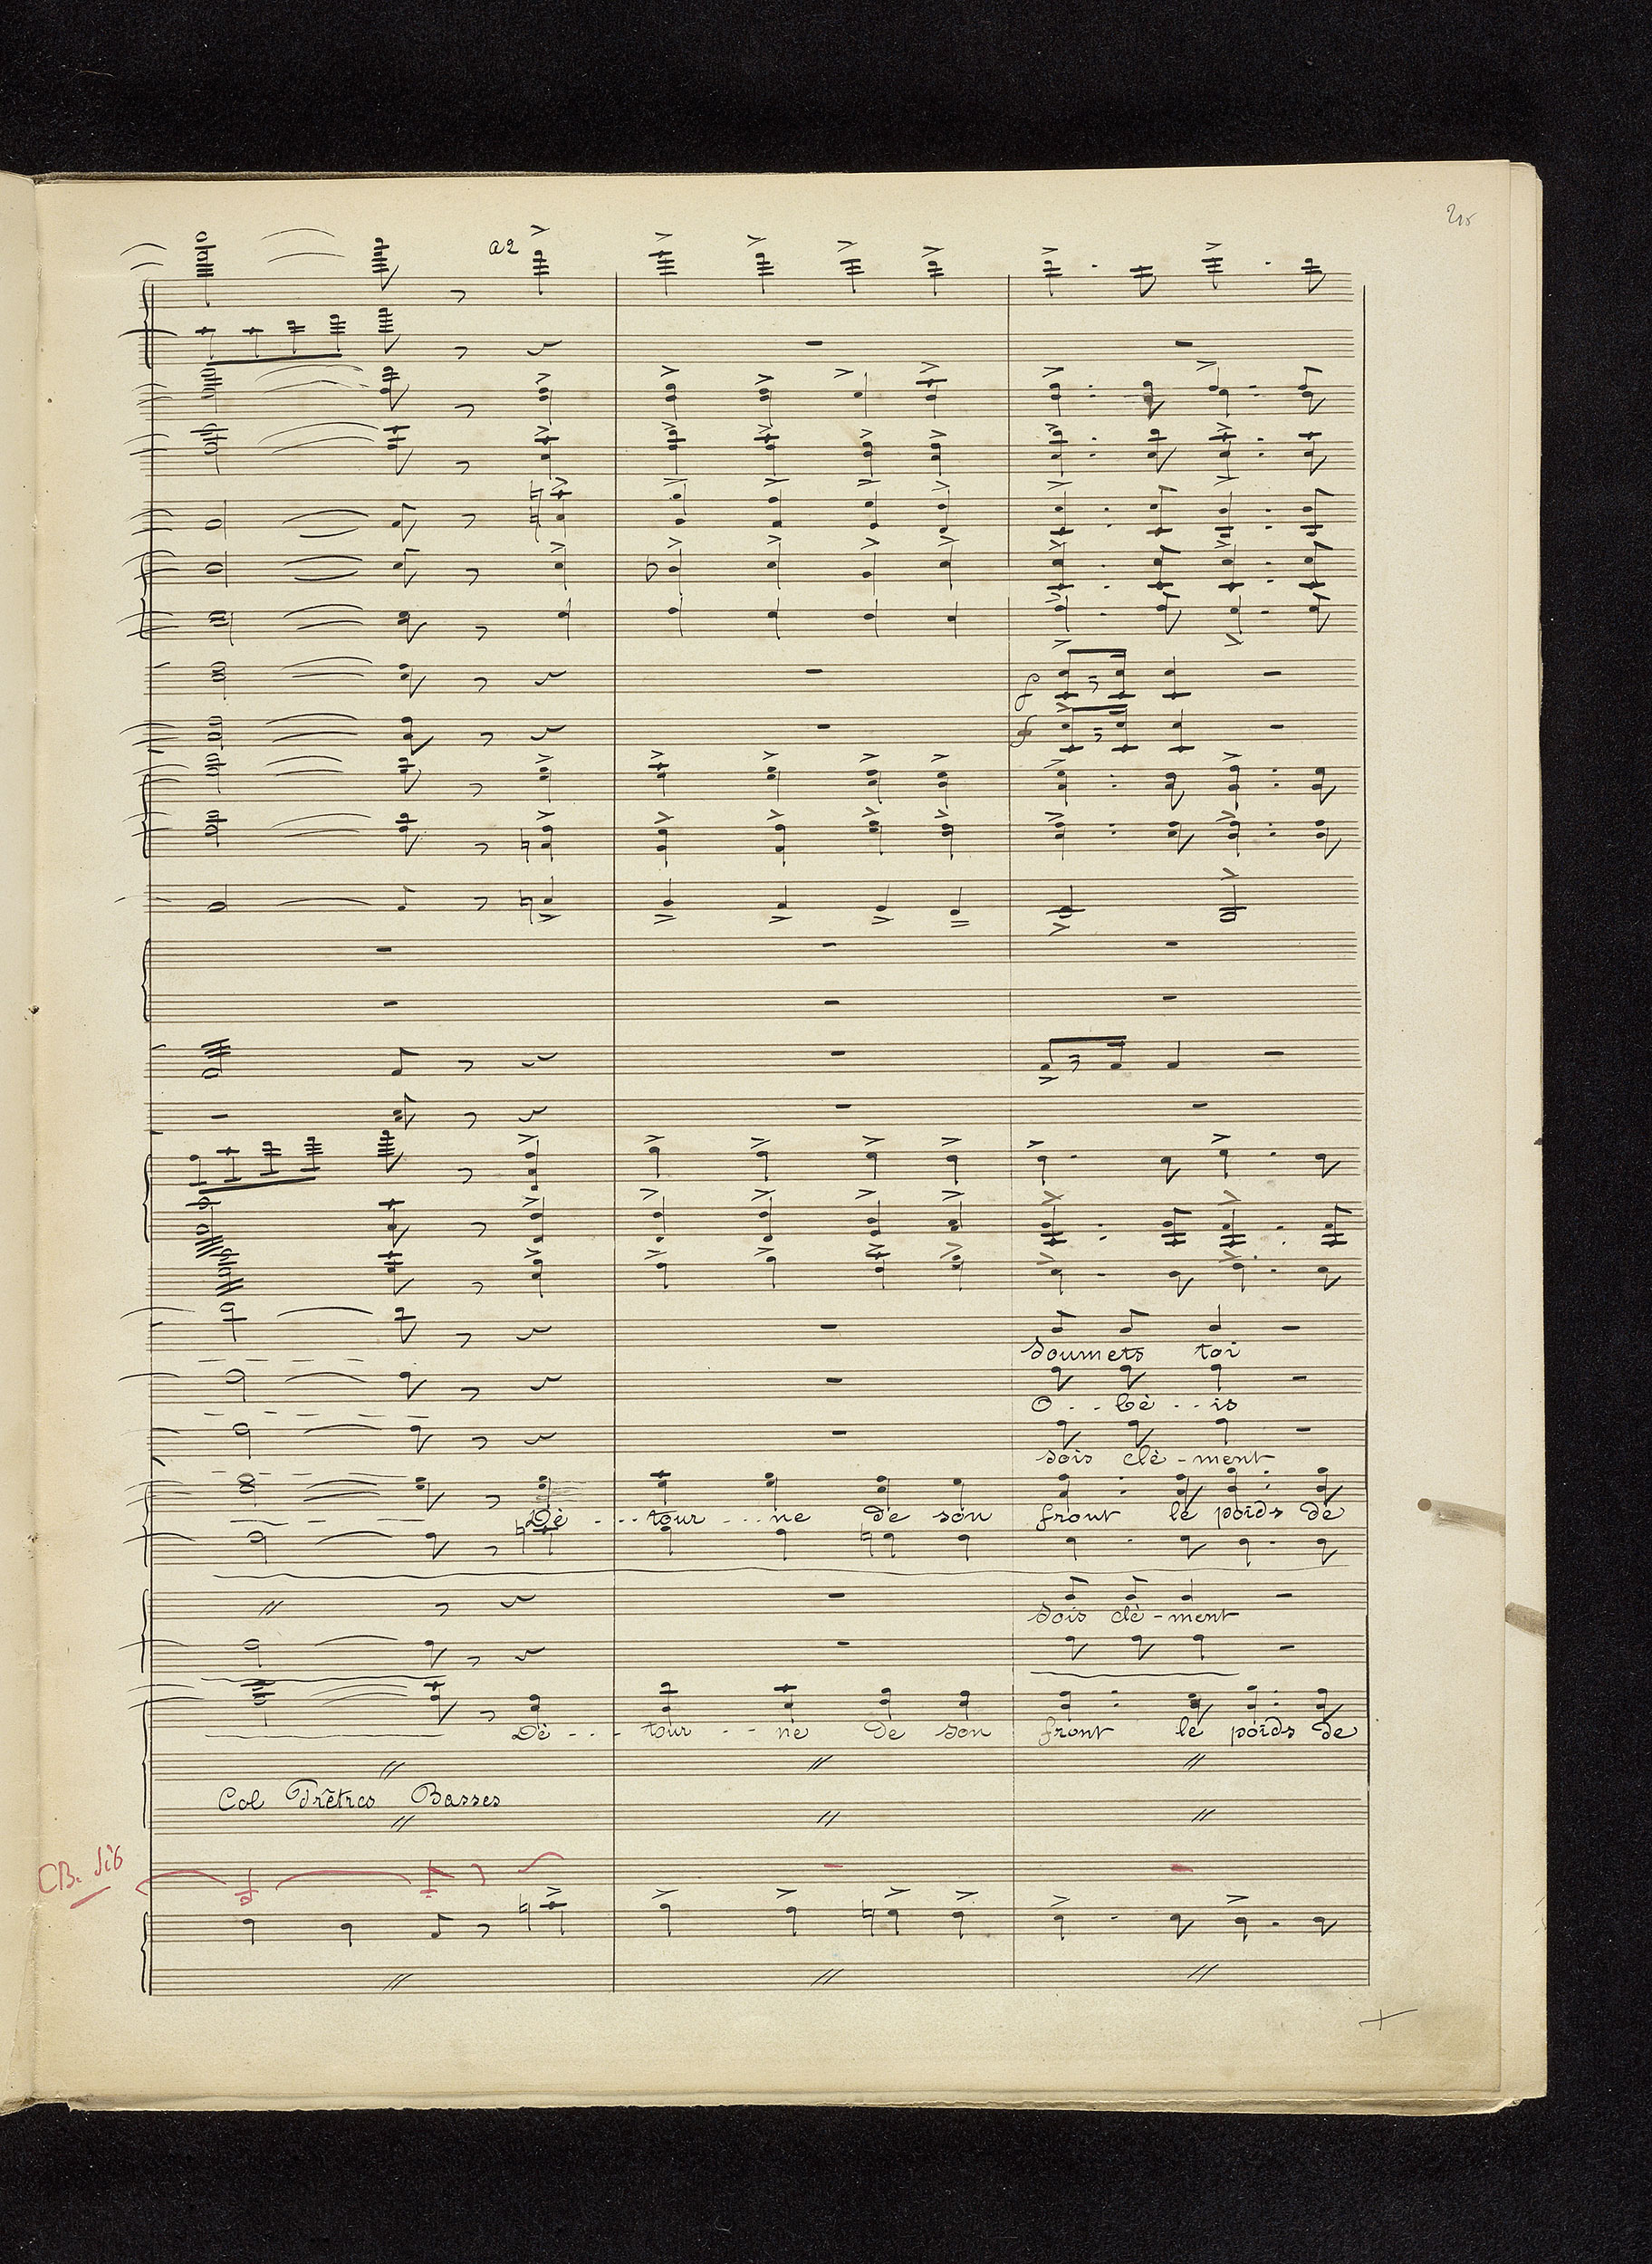 215
a2
f
f
Soumets toi
O . . bé . . is
sois clé - ment
Dé . . . tour . . . ne de son front le poids de
sois clé - ment
Dé - - - tour - - ne de son front le poids de
Col Prêtres Basses
CB. Sib